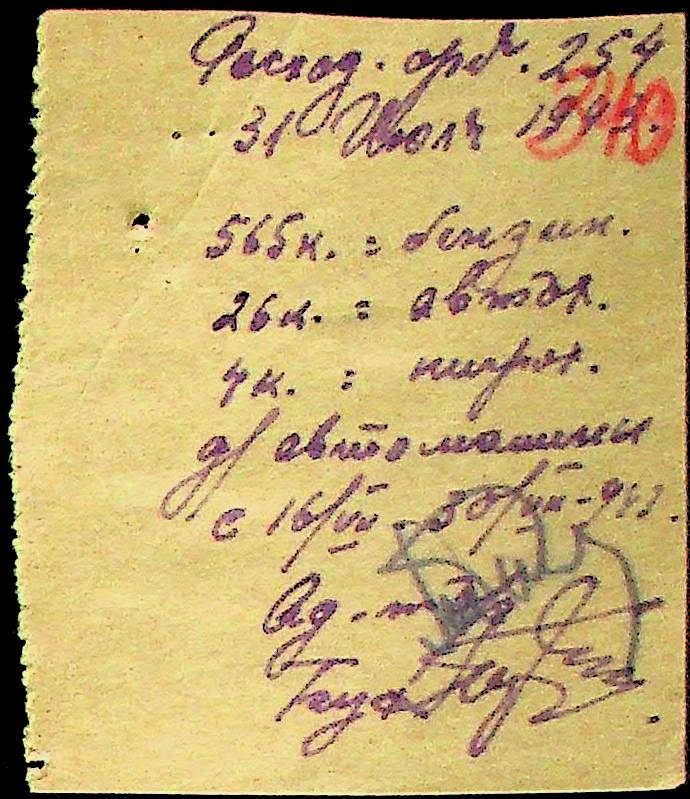 Расход. орд. 254
340
31 Июля 1943.
565 к. = бензин.
26 к. = автол.
4 к. = нигрол.
д/ автомашины
с 16/VII - 30/VII-943.
Ад-тор